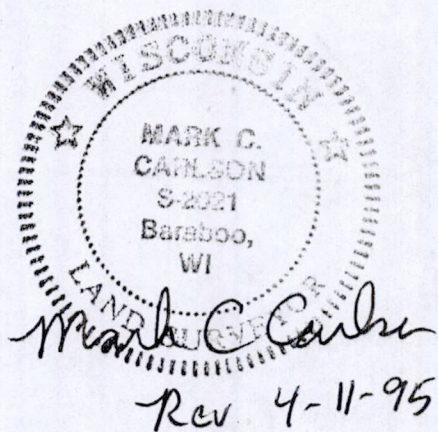 WISCONSIN
MARK C.
CARLSON
S-2021
Baraboo,
WI
LAND SURVEYOR
Mark C Carlson
Rev 4-11-95